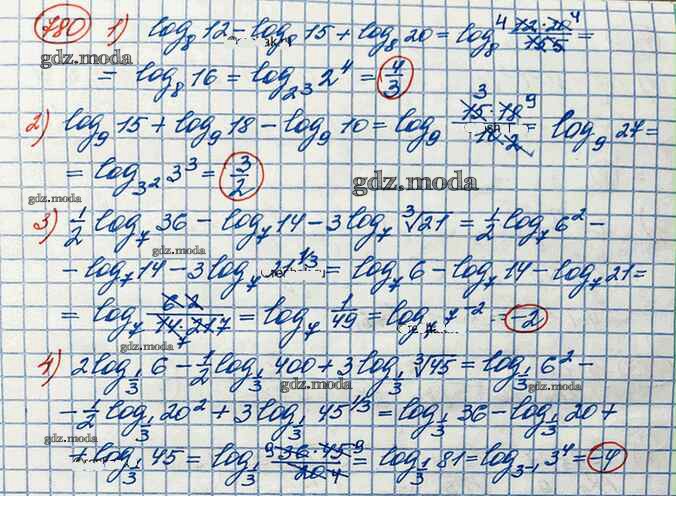 780 1) log₈ 12 - log₈ 15 + log₈ 20 = log₈ (⁴12·20⁴)/(15 5) =
gdz.moda
= log₈ 16 = log₂³ 2⁴ = 4/3
2) log₉ 15 + log₉ 18 - log₉ 10 = log₉ (³15·18⁹)/(10 2) = log₉ 27 =
= log₃² 3³ = 3/2
gdz.moda
gdz.moda
3) 1/2 log₇ 36 - log₇ 14 - 3 log₇ ³√21 = 1/2 log₇ 6² -
gdz.moda
- log₇ 14 - 3 log₇ 21^1/3 = log₇ 6 - log₇ 14 - log₇ 21 =
= log₇ (6 2)/(14·21 7) = log₇ 1/49 = log₇ 7⁻² = -2
gdz.moda
4) 2 log_1/3 6 - 1/2 log_1/3 400 + 3 log_1/3 ³√45 = log_1/3 6² -
gdz.moda gdz.moda
- 1/2 log_1/3 20² + 3 log_1/3 45^1/3 = log_1/3 36 - log_1/3 20 +
gdz.moda
+ log_1/3 45 = log_1/3 (⁹36·45⁹)/(20 4) = log_1/3 81 = log₃₋₁ 3⁴ = -4